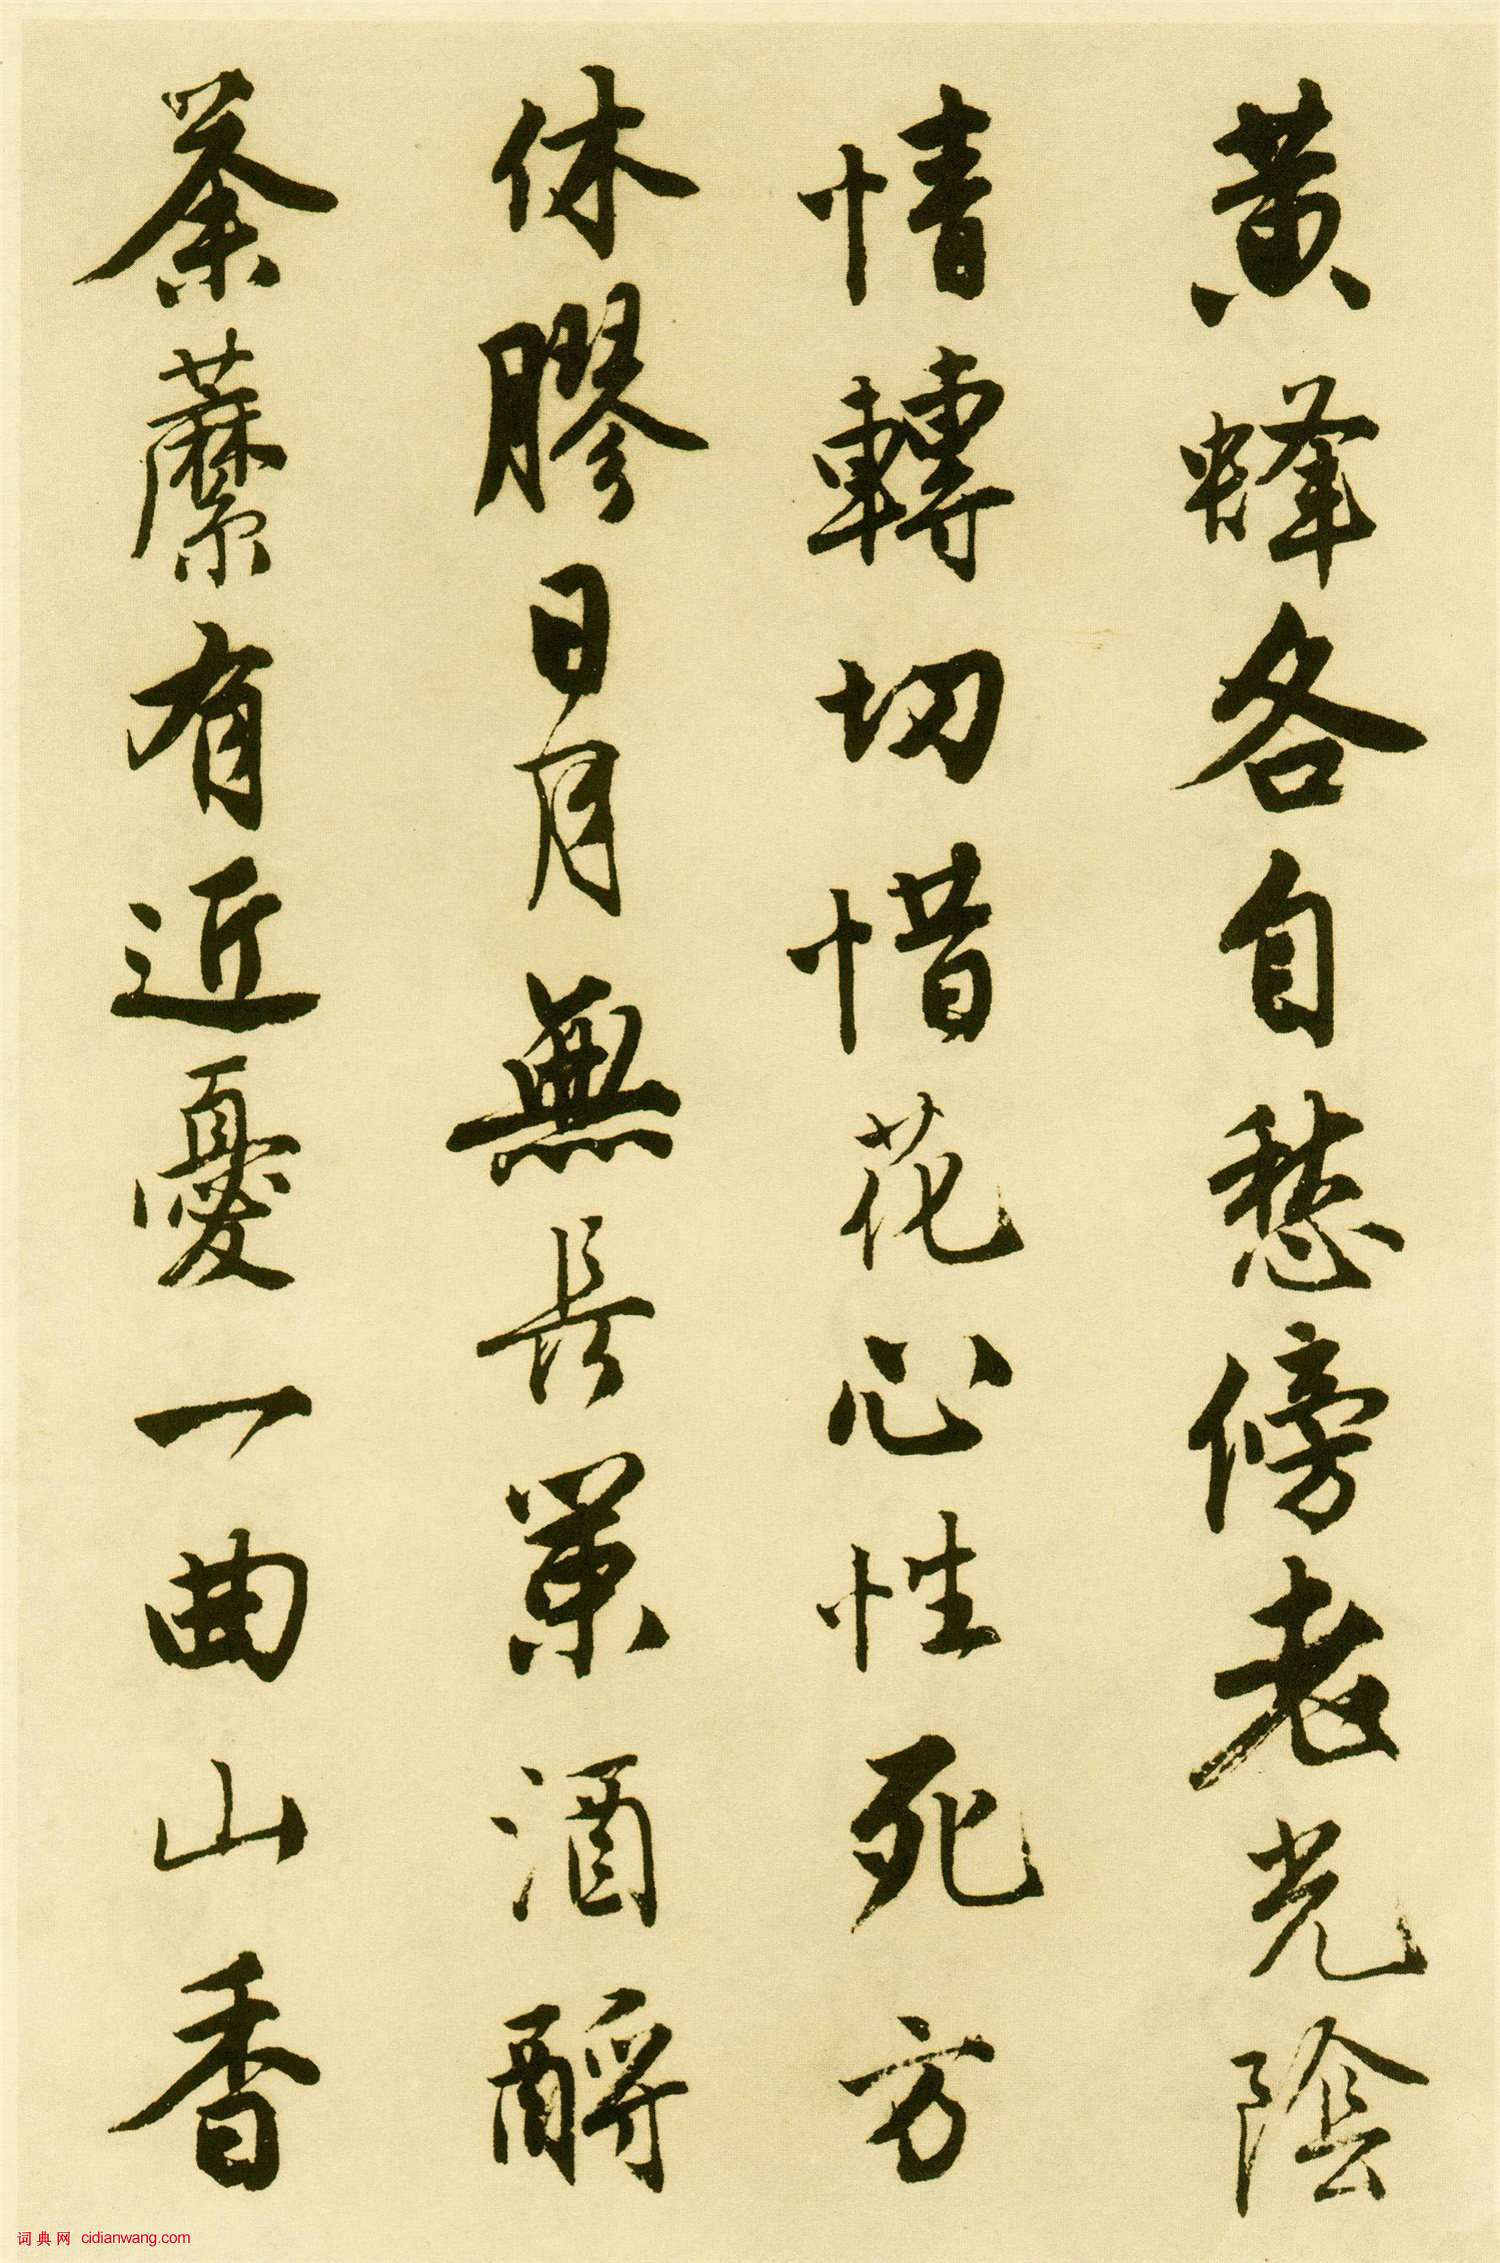 黄蜂各自愁傍老光陰
情轉切惜花心性死方
休膠日月無長策酒酹
荼蘼有近憂一曲山香
词典网 cidianwang.com